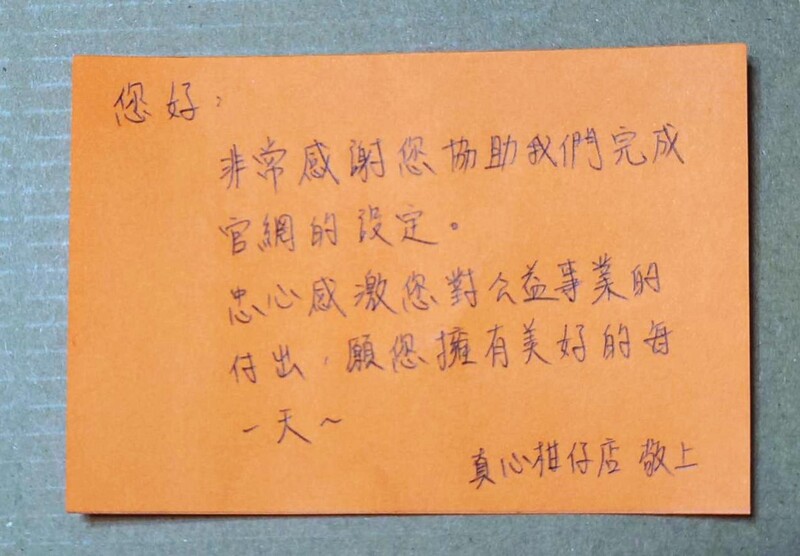 您好，
非常感謝您協助我們完成
官網的設定。
忠心感激您對公益事業的
付出，願您擁有美好的每
一天～
真心柑仔店 敬上